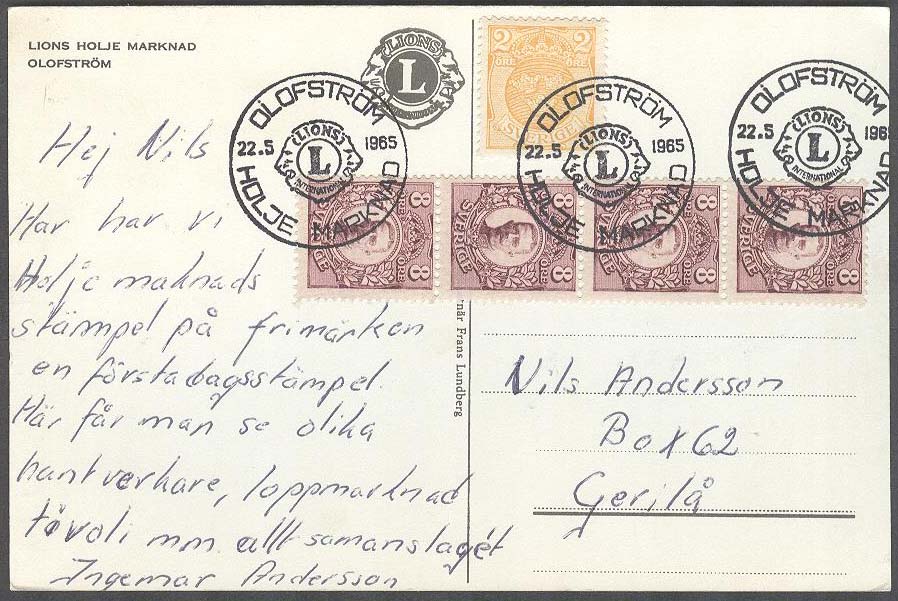 LIONS HOLJE MARKNAD
OLOFSTRÖM
LIONS
L
2 2
ÖRE ÖRE
SVERIGE
OLOFSTRÖM
22.5 1965
LIONS
L
INTERNATIONAL
HOLJE MARKNAD
OLOFSTRÖM
22.5 1965
LIONS
L
INTERNATIONAL
HOLJE MARKNAD
OLOFSTRÖM
22.5 196
LIONS
L
INTERNATIONAL
HOLJE MARKNAD
8 SVERIGE ÖRE 8
8 SVERIGE ÖRE 8
8 SVERIGE ÖRE 8
8 SVERIGE ÖRE 8
Hej Nils
Här har vi
Holje maknads
stämpel på frimärken
en förstadagsstämpel.
Här får man se olika
hantverkare, loppmarknad
tivoli mm allt samanslaget
Ingemar Andersson
när Frans Lundberg
Nils Andersson
Box 62
Gerilå